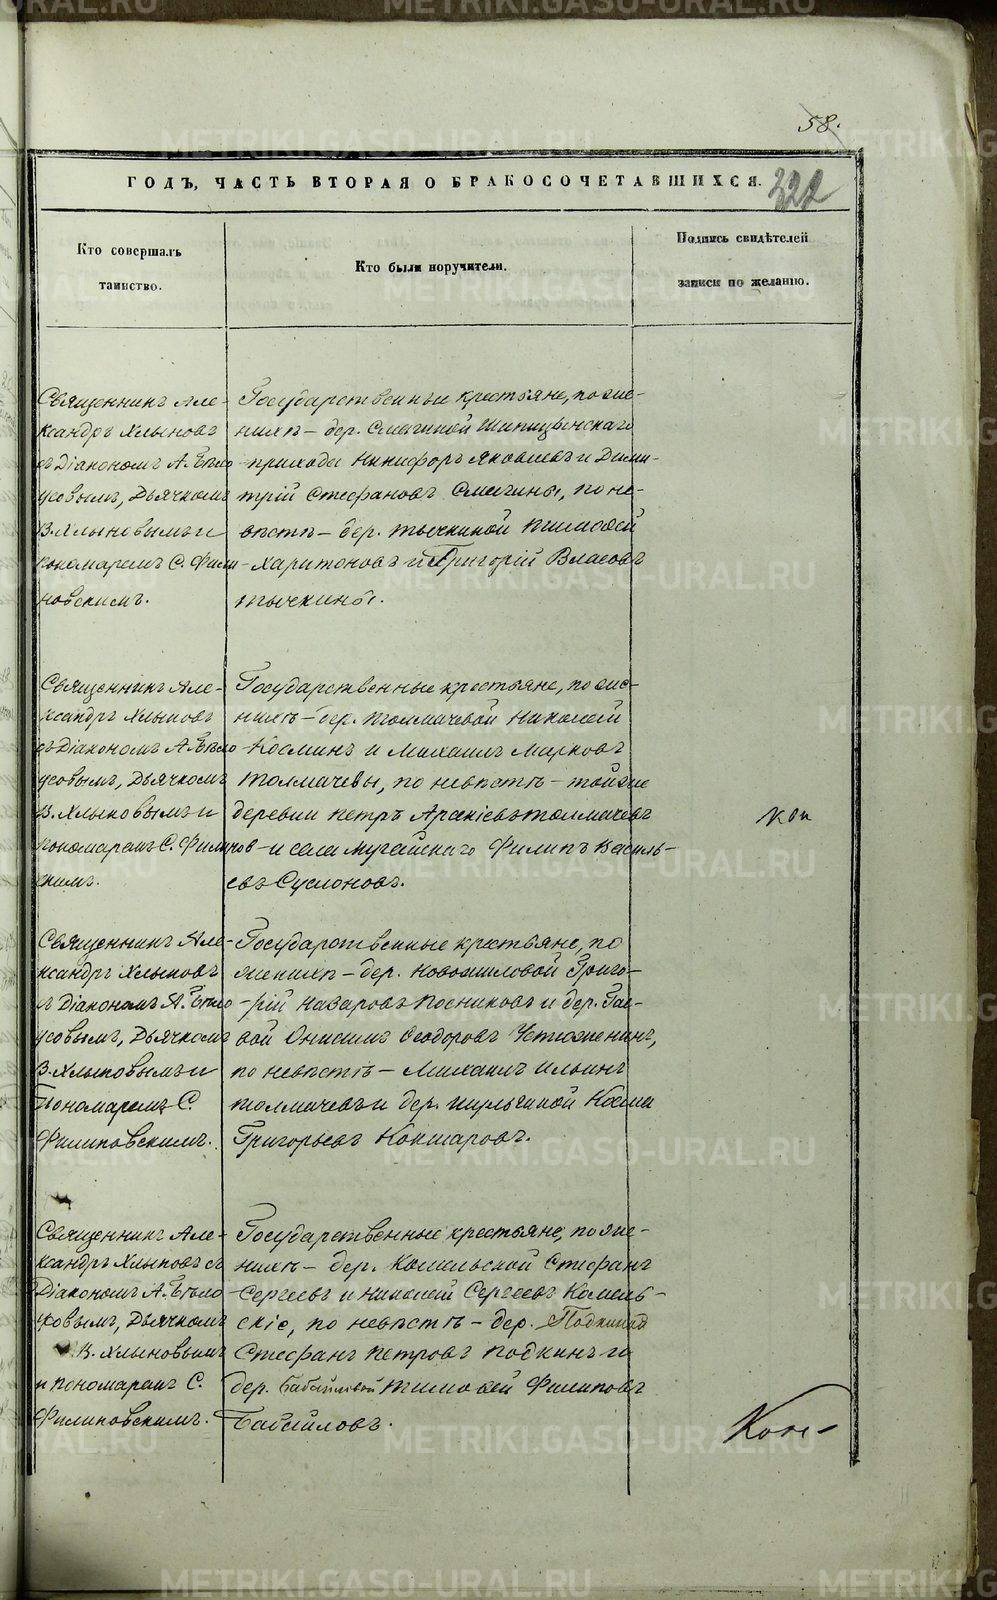 58.
ГОДЪ, ЧАСТЬ ВТОРАЯ О БРАКОСОЧЕТАВШИХСЯ.
322
Кто совершалъ
таинство.
Кто были поручители.
Подпись свидѣтелей
записи по желанію.
Священникъ Але-
ксандръ Хлыновъ
съ Діакономъ А. Бѣло
усовымъ, Дьячкомъ
В. Хлыновымъ и
пономаремъ С. Фили
новскимъ.
Государственные крестьяне, по же-
нихѣ – дер. Смыгиной Шипицынскаго
прихода Никифоръ Яковлевъ и Дими-
трій Стефановъ Смыгины, по не-
вѣстѣ – дер. Тычкиной Тимоѳей
Харитоновъ и Григорій Власовъ
Тычкины.
Священникъ Але-
ксандръ Хлыновъ
съ Діакономъ А. Бѣло
усовымъ, Дьячкомъ
В. Хлыновымъ и
пономаремъ С. Филипов
скимъ.
Государственные крестьяне, по же-
нихѣ – дер. Толмачевой Николай
Косминъ и Михаилъ Марковъ
Толмачевы, по невѣстѣ – тойже
деревни Петръ Толмачевъ
и села Мугайскаго Филипъ Василь-
евъ Суслоновъ.
Священникъ Але-
ксандръ Хлыновъ
съ Діакономъ А. Бѣло
усовымъ, Дьячкомъ
В. Хлыновымъ и
Пономаремъ С.
Филиповскимъ.
Государственные крестьяне, по
женихѣ – дер. Новошиловой Григо-
рій Назаровъ Посниковъ и дер. Гае-
вой Онисимъ Ѳеодоровъ Устюженинъ,
по невѣстѣ – Михаилъ Ильинъ
Толмачевъ и дер. Косма
Григорьевъ Кокшаровъ.
Священникъ Але-
ксандръ Хлыновъ съ
Діакономъ А. Бѣло
усовымъ, Дьячкомъ
В. Хлыновымъ
и Пономаремъ С.
Филиповскимъ.
Государственные крестьяне, по же-
нихѣ – дер. Комельской Стефанъ
Сергеевъ и Николай Сергеевъ Комель-
скіе, по невѣстѣ – дер. Подкиной
Стефанъ Петровъ Подкинъ и
дер. Бабайловой Тимоѳей Филиповъ
Бабайловъ.
METRIKI.GASO-URAL.RU